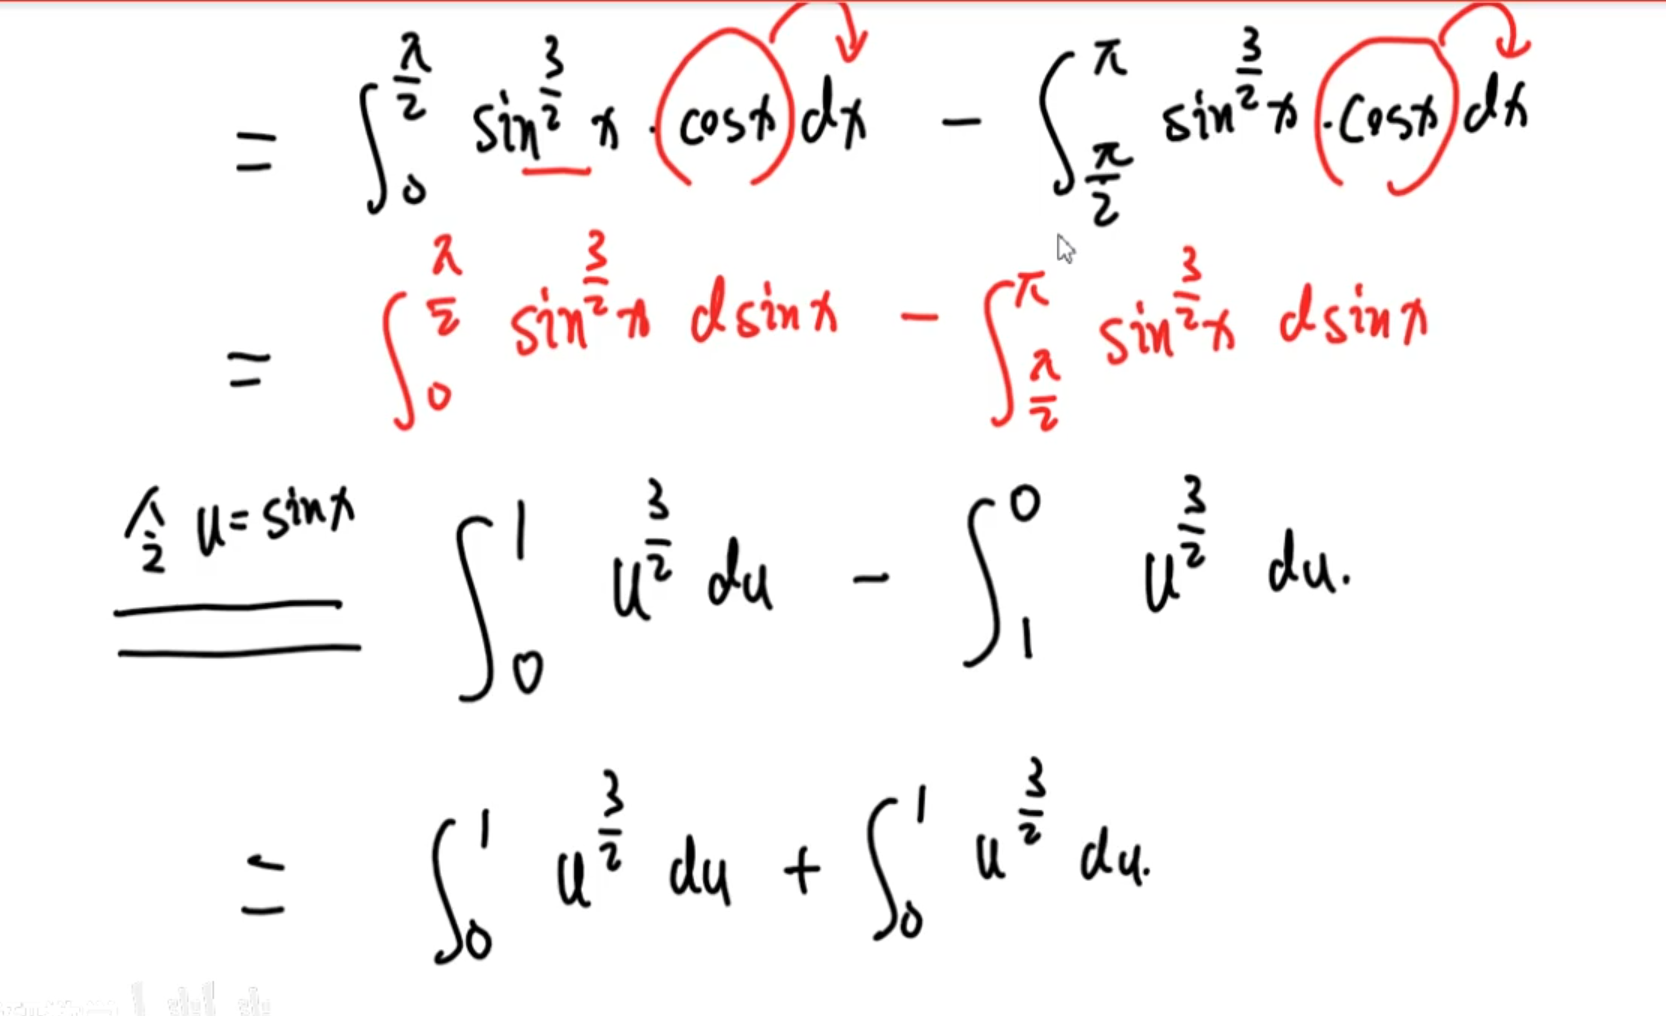 = ∫_0^{π/2} sin^{3/2} x · cosx dx − ∫_{π/2}^{π} sin^{3/2} x · cosx dx
= ∫_0^{π/2} sin^{3/2} x dsinx − ∫_{π/2}^{π} sin^{3/2} x dsinx
令 u = sinx ∫_0^1 u^{3/2} du − ∫_1^0 u^{3/2} du.
= ∫_0^1 u^{3/2} du + ∫_0^1 u^{3/2} du.